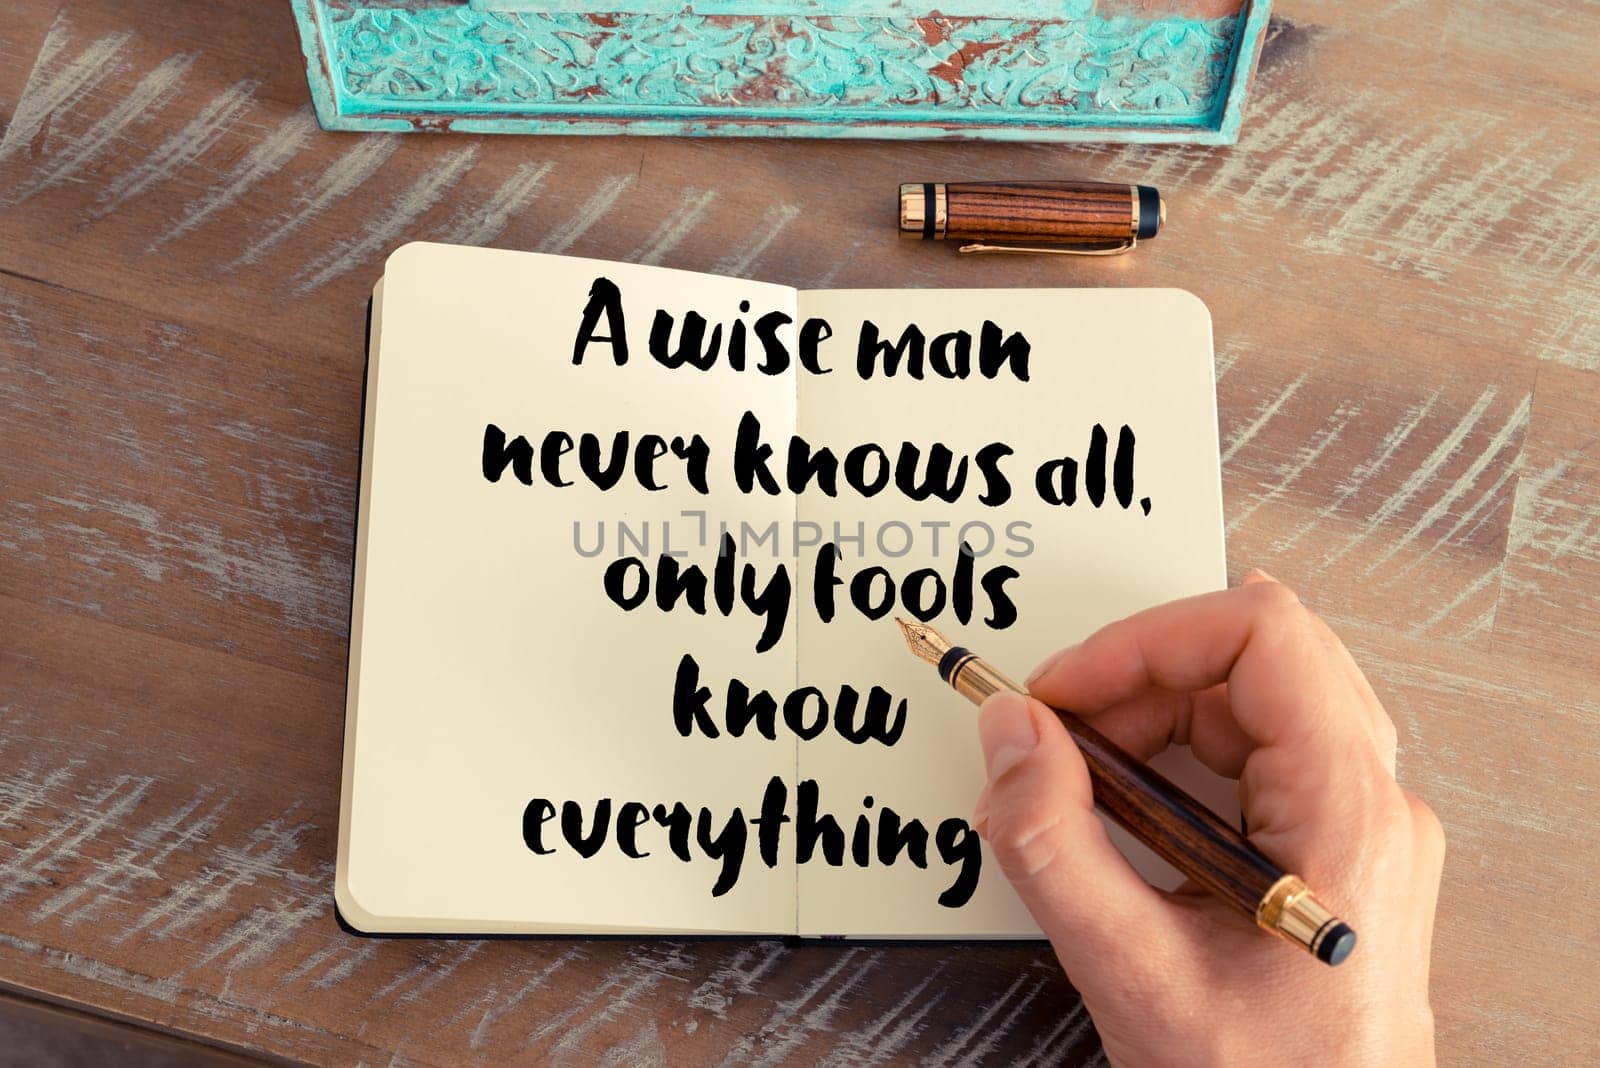 A wise man
never knows all,
UNLIMPHOTOS
only fools
know
everything